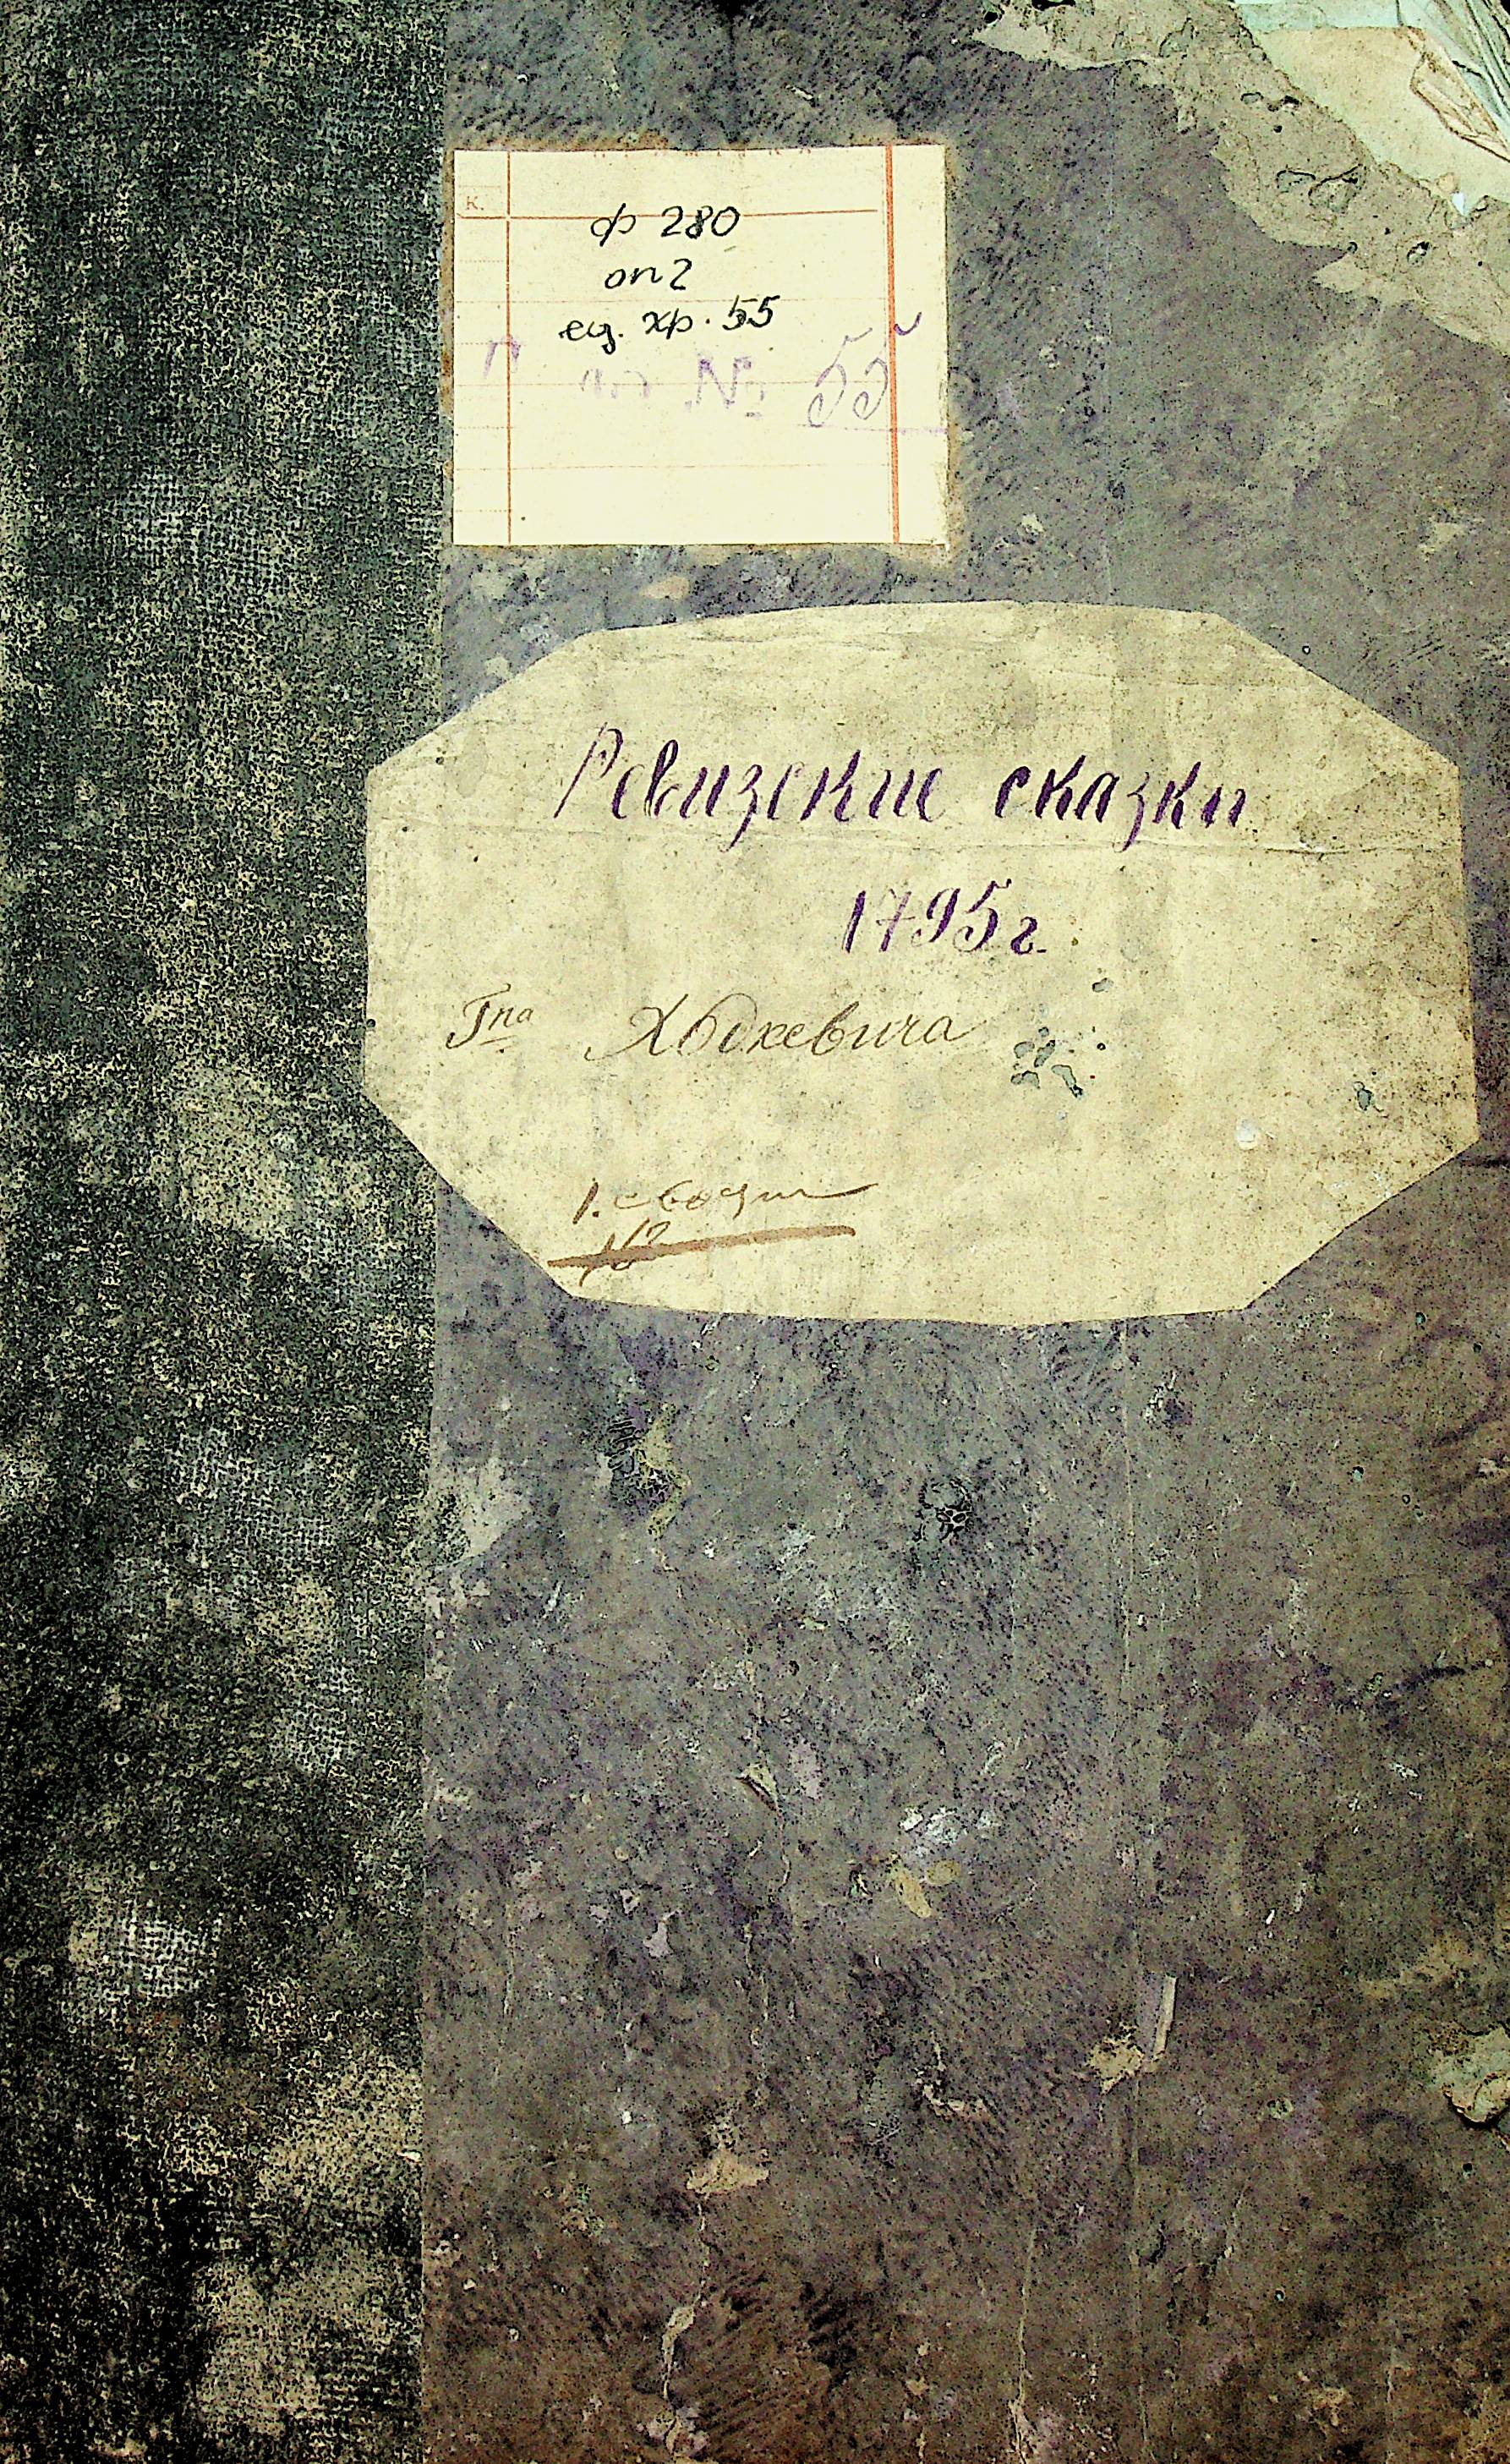 К.
ф 280
оп 2
ед. хр. 55
№ 55
Ревизские сказки
1795 г.
Гна Ходкевича
1.